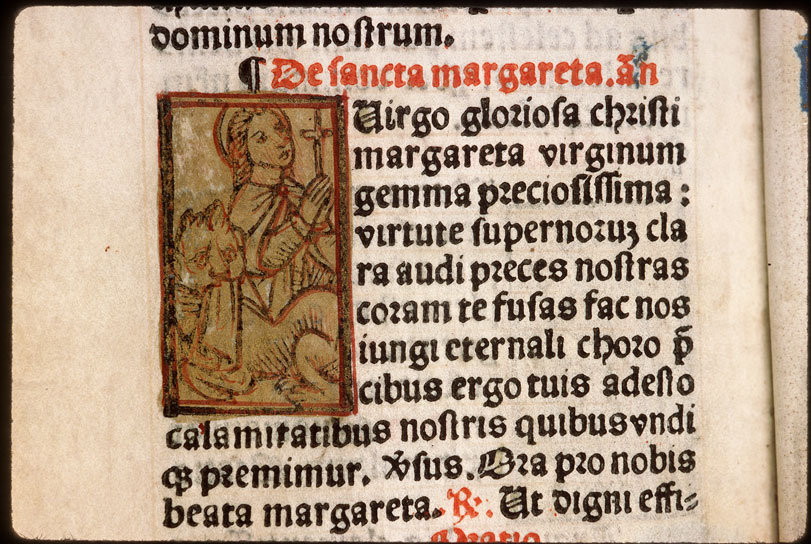 dominum noſtrum.
¶ De ſancta margareta. añ
Uirgo glorioſa chriſti
margareta virginum
gemma precioſiſſima :
virtute ſupernoruꝫ cla
ra audi preces noſtras
coram te fuſas fac nos
iungi eternali choro p̄
cibus ergo tuis adeſto
calamitatibus noſtris quibus vndi
qꝫ premimur. ℣ſus. Ora pro nobis
beata margareta. ℟. Ut digni effi⸗
Oratio